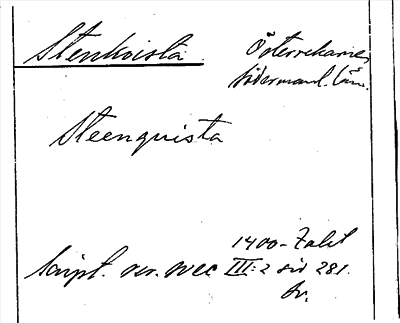 Stenkvista Österrekarne
Södermanl. län.
Steenquista
1400-talet
Script. rer. svec III:2 sid 281.